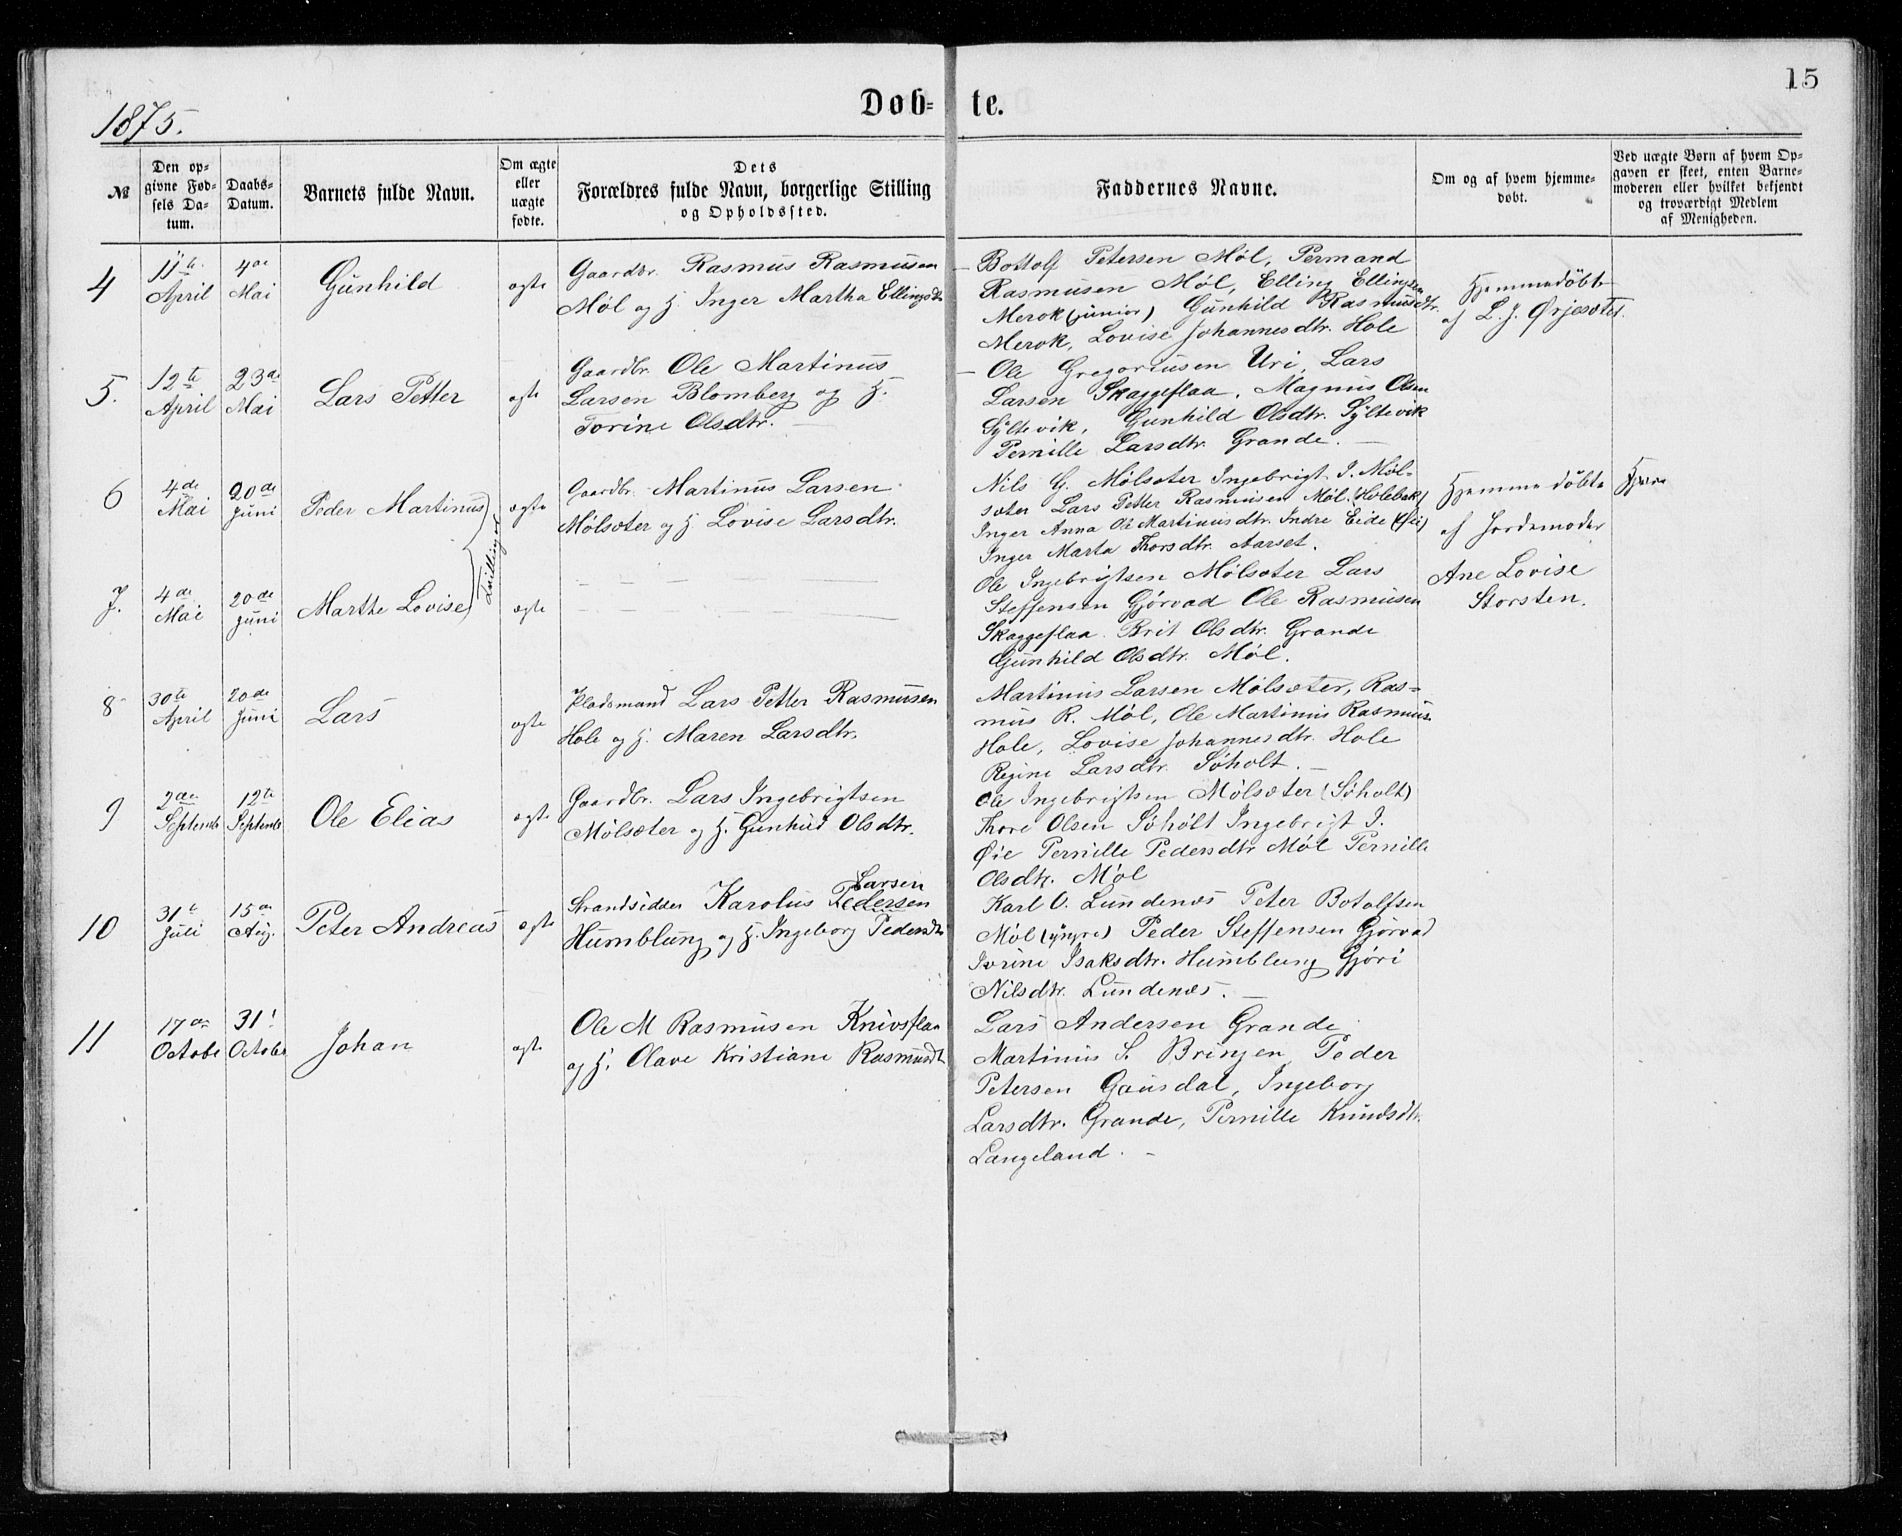 15
1875.
Døb- te.
№
Den op-
givne Fød-
sels Da-
tum.
Daabs-
Datum.
Barnets fulde Navn.
Om ægte
eller
uægte
fødte.
Dets
Forældres fulde Navn, borgerlige Stilling
og Opholdssted.
Faddernes Navne.
Om og af hvem hjemme-
døbt.
Ved uægte Børn af hvem Op-
gaven er skeet, enten Barne-
moderen eller hvilket bekjendt
og troværdigt Medlem
af Menigheden.
4
11te
April
4de
Mai
Gunhild
ægte
Gaardbr. Rasmus Rasmusen
Møl og H. Inger Martha Ellingsdtr
Bottolf Petersen Møl, Permand
Rasmusen Møl, Elling Ellingsen
Merok (junior) Gunhild Rasmusdtr.
Merok, Lovise Johannesdtr. Hole
Hjemmedøbt
af L. J. Ørjesæter.
5.
12te
April
23de
Mai
Lars Petter
ægte
Gaardbr. Ole Martinus
Larsen Blomberg og H.
Torine Olsdtr.
Ole Gregoriusen Uri, Lars
Larsen Skaggeflaa, Magnus Olsen
Syltevik, Gunhild Olsdtr. Syltevik
Pernille Larsdtr Grande.
6
4de
Mai
20de
Juni
Peder Martinus
Tvillinger
ægte
Gaardbr. Martinus Larsen
Mølsæter og H Lovise Larsdtr.
Nils G. Mølsæter Ingebrigt I. Møl-
sæter Lars Petter Rasmusen Møl (Holebak)
Inger Anna Ole Martinusdtr. Indre Eide
Inger Marta Thorsdtr. Aarset.
Hjemmedøbte
af Jordemoder
Ane Lovise
Storsten.
7.
4de
Mai
20de
Juni
Marthe Lovise
ægte
— — —
Ole Ingebrigtsen Mølsæter Lars
Steffensen Gjørvad Ole Rasmusen
Skaggeflaa. Brit Olsdtr. Grande
Gunhild Olsdtr. Møl.
8
30te
April
20de
Juni
Lars
ægte
Pladsmand Lars Petter Rasmusen
Hole og H. Maren Larsdtr.
Martinus Larsen Mølsæter, Ras-
mus R. Møl, Ole Martinus Rasmus.
Hole, Lovise Johannesdtr. Hole
Regine Larsdtr. Søholt.
9
2den
Septemb
12te
Septemb
Ole Elias
ægte
Gaardbr. Lars Ingebrigtsen
Mølsæter og H. Gunhild Olsdtr.
Ole Ingebrigtsen Mølsæter (Søholt)
Thore Olsen Søholt Ingebrigt I.
Øie Pernille Pedersdtr Møl Pernille
Olsdtr. Møl
10
31te
Juli
15de
Aug.
Peter Andreas
ægte
Larsen
Strandsidder Karolus Pedersen
Humblung og H. Ingeborg Pedersdtr
Karl O. Lundenæs Peter Botolfsen
Møl (yngre) Peder Steffensen Gjørvad
Ivrine Isaksdtr. Humblung Gjøri
Nilsdtr. Lundenæs.
11
17de
Octobe
31
October
Johan
ægte
Ole M Rasmusen Knivsflaa
og H. Olave Kristiane Rasmusdt
Lars Andersen Grande
Martinus S. Bringen Peder
Petersen Gausdal, Ingeborg
Larsdtr. Grande, Pernille Knudsdtr.
Langeland.